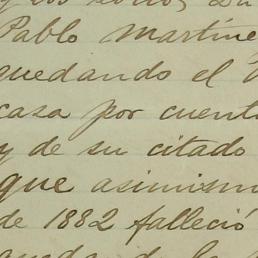 Pablo Martíne
quedando el
casa por cuent
y de su citado
que asimism
de 1882 falleció